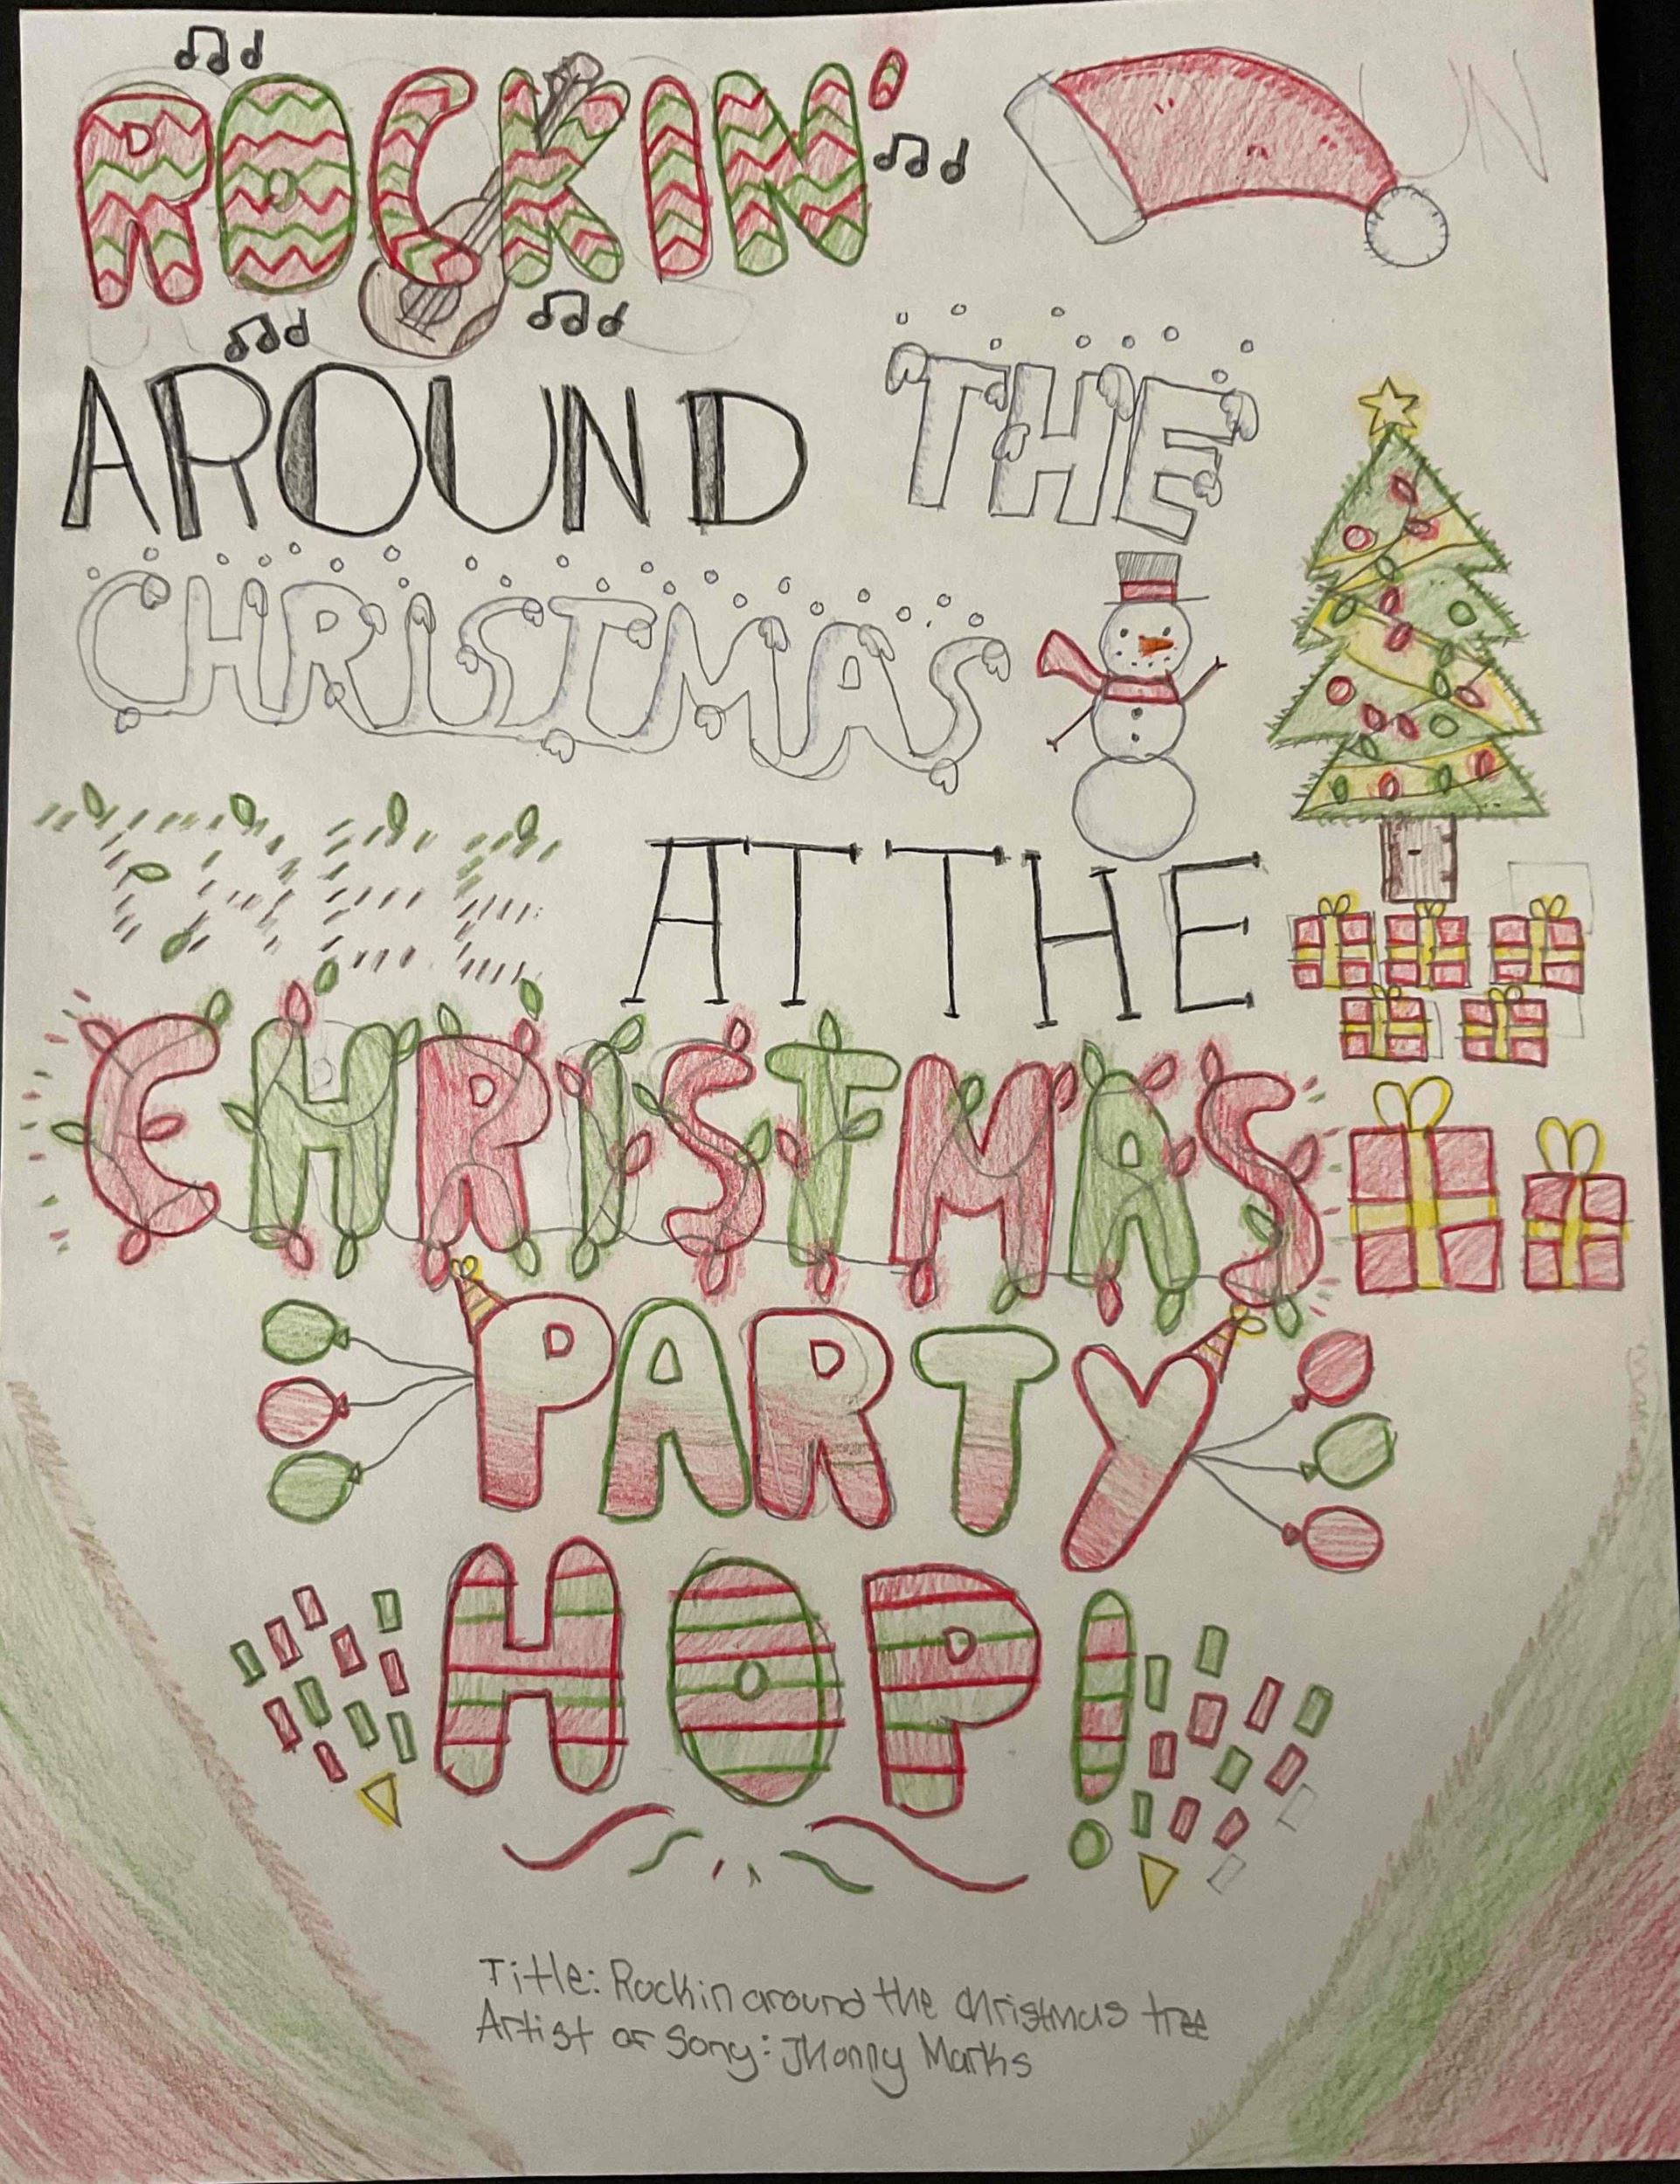 ROCKIN'
AROUND THE
CHRISTMAS
TREE AT THE
CHRISTMAS
PARTY
HOP!
Title: Rockin around the christmas tree
Artist of Song: Jhonny Marks